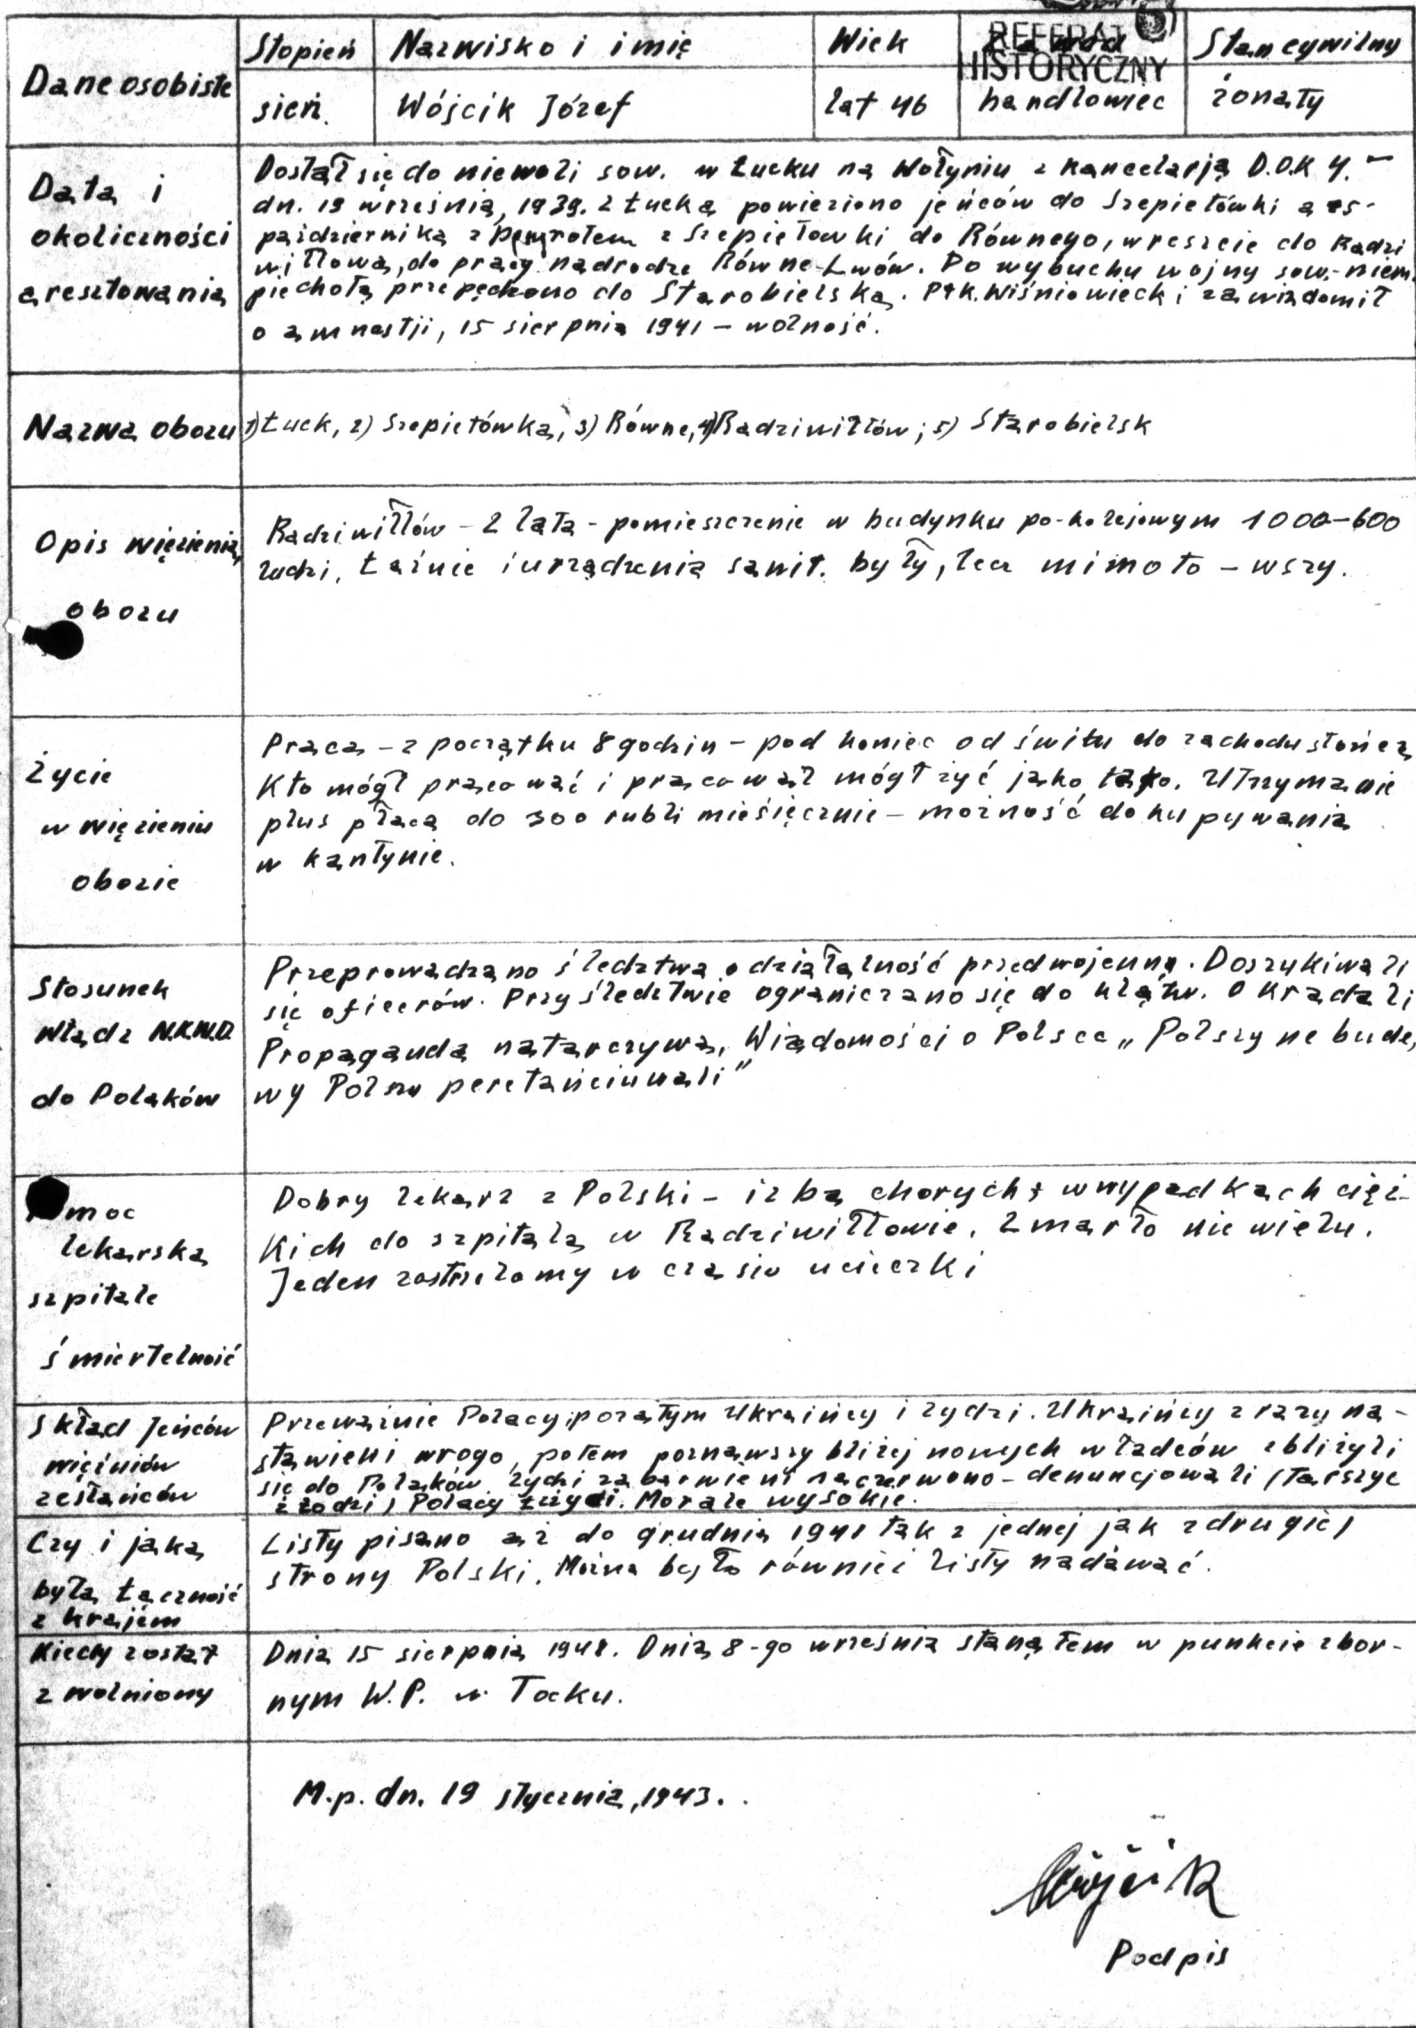 REFERAT
HISTORYCZNY
Dane osobiste
Stopień Nazwisko i imię Wiek Zawód Stan cywilny
sierż. Wójcik Józef lat 46 handlowiec żonaty
Data i
okoliczności
aresztowania
Dostał się do niewoli sow. w Łucku na Wołyniu z kancelarją D.O.K 4. –
dn. 19 września, 1939. Z Łucka powieziono jeńców do Szepietówki a
października z powrotem z Szepietowki do Równego, wreszcie do Radzi
wiłłowa, do pracy nadrodze Równe-Lwów. Po wybuchu wojny sow.-niem.
piechotą przepędzono do Starobielska. Płk. Wiśniowiecki zawiadomił
o amnestji, 15 sierpnia 1941 – wolność.
Nazwa obozu
1) Łuck, 2) Szepietówka, 3) Równe, 4) Radziwiłłów; 5) Starobielsk
Opis więzienia,
obozu
Radziwiłłów – 2 lata – pomieszczenie w budynku po-kolejowym 1000–600
ludzi. Łaźnie i urządzenia sanit. były, lecz mimo to – wszy.
Życie
w więzieniu
obozie
Praca – z początku 8 godzin – pod koniec od świtu do zachodu słońca
Kto mógł pracować i pracował mógł żyć jako tako. Utrzymanie
plus płaca do 300 rubli miesięcznie – możność dokupywania
w kantynie.
Stosunek
władz N.K.W.D.
do Polaków
Przeprowadzano śledztwa o działalność przedwojenną. Doszukiwali
się oficerów. Przy śledztwie ograniczano się do klątw. Okradali
Propaganda natarczywa, Wiadomości o Polsce „Polszy ne bude,
wy Polszu peretańciuwali"
Pomoc
lekarska
szpitale
śmiertelność
Dobry lekarz z Polski – izba chorych; w wypadkach cięż-
kich do szpitala w Radziwiłłowie. Zmarło nie wielu.
Jeden zastrzelony w czasie ucieczki
Skład jeńców
więźniów
zesłańców
Przeważnie Polacy; pozatym Ukraińcy i żydzi. Ukraińcy z razu na-
stawieni wrogo, potem poznawszy bliżej nowych władców zbliżyli
się do Polaków. Żydzi zabarwieni na czerwono – denuncjowali (Tarszyc
z Łodzi) Polacy zżyci. Morale wysokie.
Czy i jaka
była łączność
z krajem
Listy pisano aż do grudnia 1941 tak z jednej jak z drugiej
strony Polski. Można było również listy nadawać.
Kiedy został
zwolniony
Dnia 15 sierpnia 1941. Dnia 8-go września stanąłem w punkcie zbor-
nym W.P. w Tocku.
M.p. dn. 19 stycznia, 1943.
Wójcik
Podpis